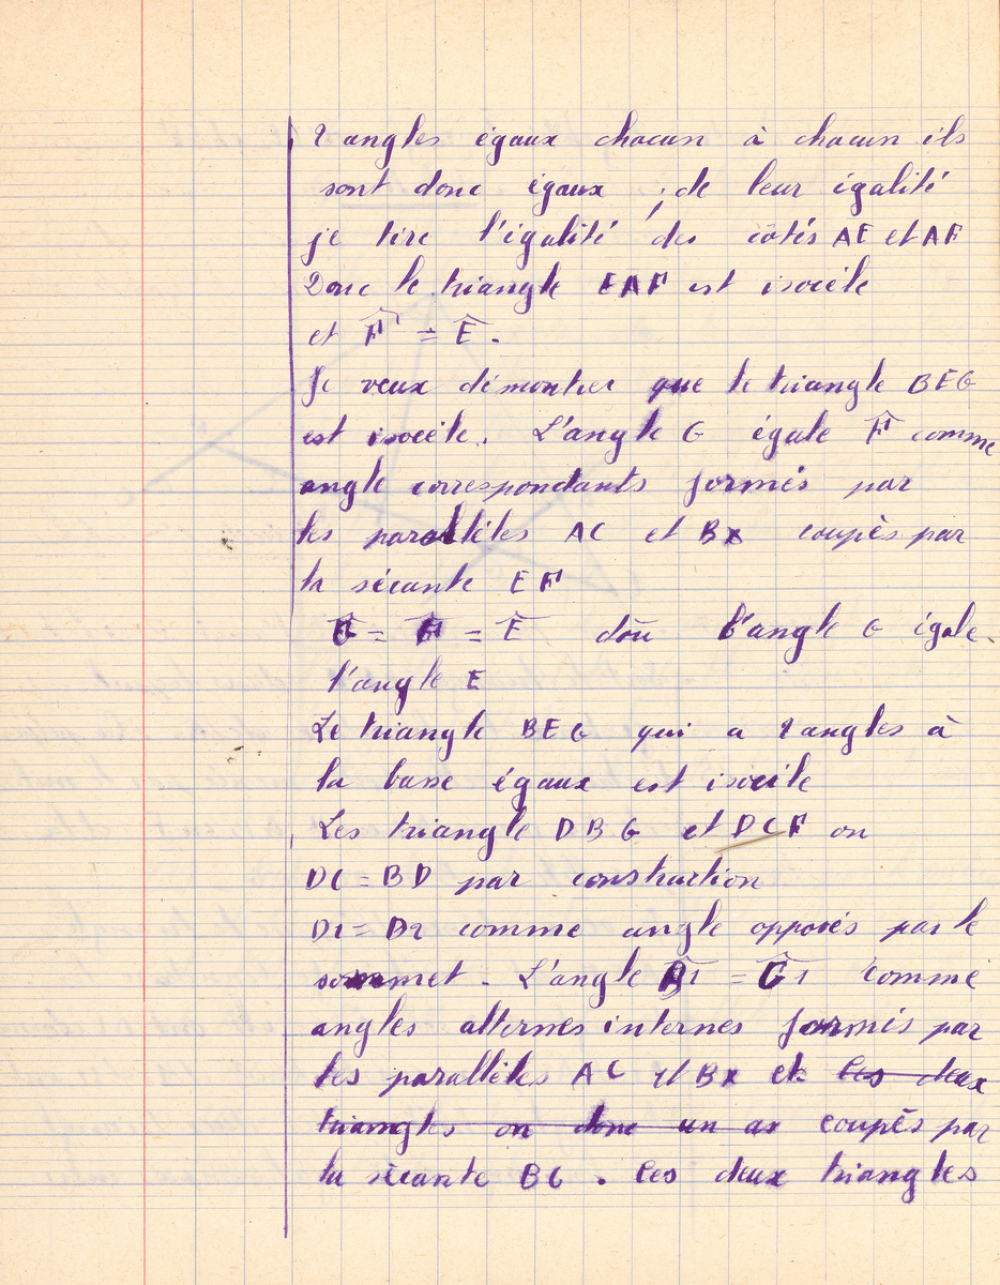 2 angles égaux chacun à chacun ils
sont donc égaux, de leur égalité
je tire l'égalité des cotés AE et AF
Donc le triangle EAF est isocèle
et F̂ = Ê.
Je veux démontrer que le triangle BEG
est isocèle. L'angle G égale F̂ comme
angle correspondants formés par
les parallèles AC et Bx coupés par
la sécante EF
Ĝ = F̂ = Ê doù l'angle G égale
l'angle E
Le triangle BEG qui a 2 angles à
la base égaux est isocèle
Les triangle DBG et DCF on
DC = BD par construction
D1 = D2 comme angle opposés par le
sommet. L'angle B̂1 = Ĉ1 comme
angles alternes internes formés par
les parallèles AC et Bx et les deux
triangles on donc un ax coupés par
la sécante BC. Ces deux triangles